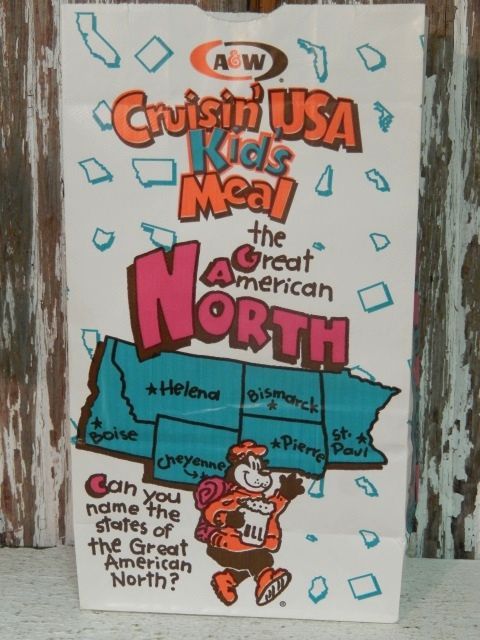 A&W
Cruisin' USA
Kid's
Meal
the
Great
American
North
Helena
Bismarck
Boise
Cheyenne
Pierre
St.
Paul
Can you
name the
states of
the Great
American
North?